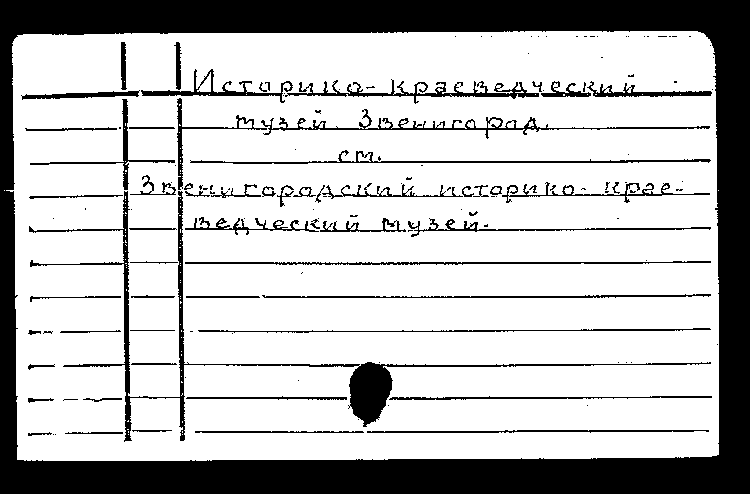 Историко-краеведческий
музей. Звенигород.
см.
Звенигородский историко-крае-
ведческий музей.